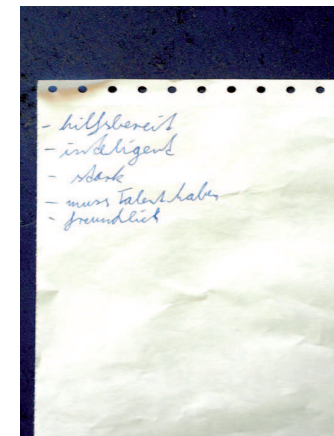 - hilfsbereit
- inteligent
- stark
- muss Talent haben
- freundlich